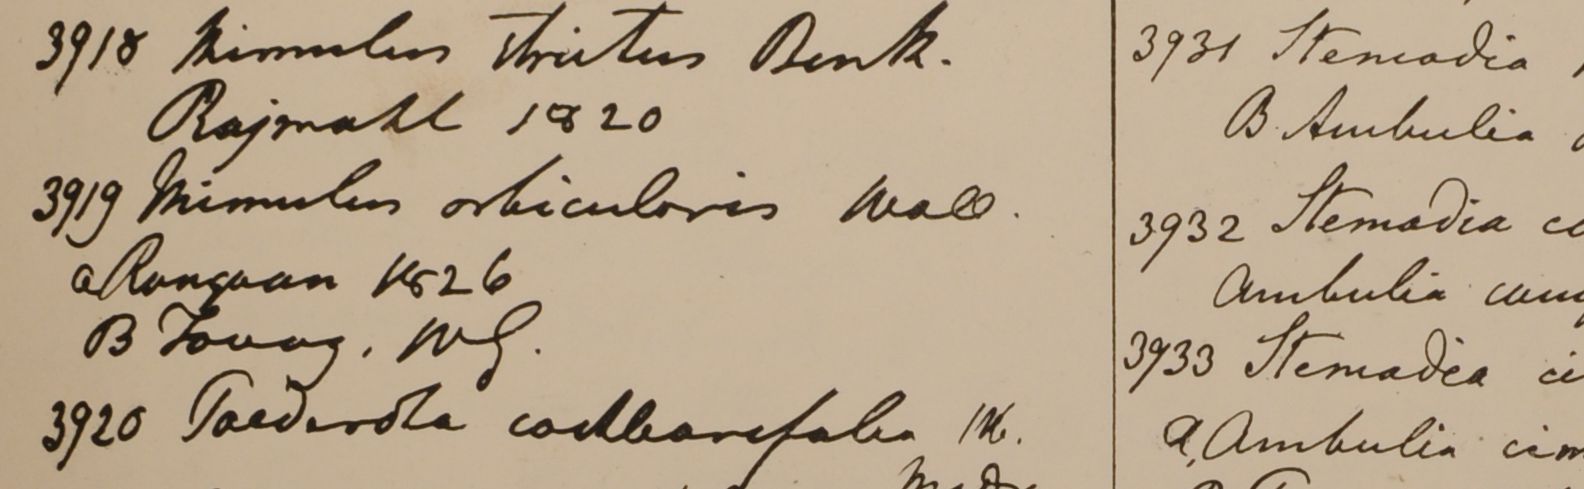 3918 Mimulus strictus Benth.
Rajmahl 1820
3919 Mimulus orbicularis Wall.
a Rangoon 1826
B Tavoy. WG.
3920 Paederota cochlearifolia
3931 Stemodia
B Ambulia
3932 Stemodia
Ambulia
3933 Stemodia
a, Ambulia